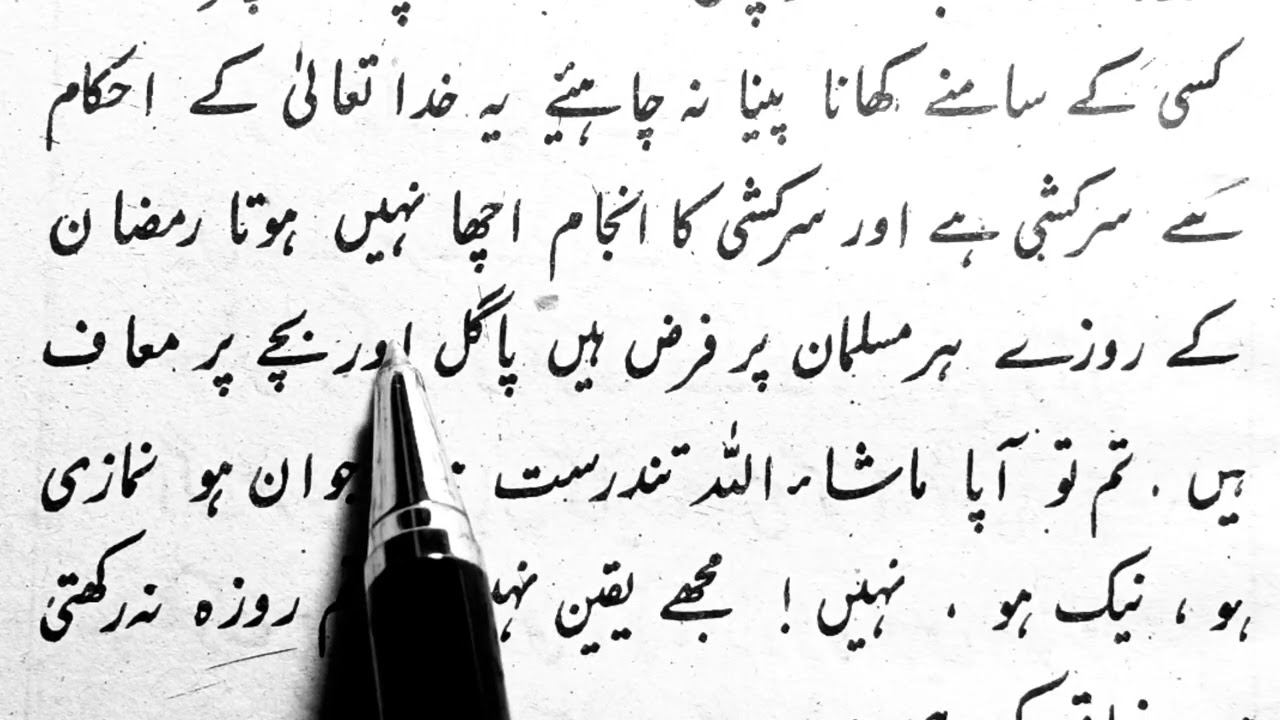 کسی کے سامنے کھانا پینا نہ چاہئیے یہ خدا تعالیٰ کے احکام
سے سرکشی ہے اور سرکشی کا انجام اچھا نہیں ہوتا رمضان
کے روزے ہر مسلمان پر فرض ہیں پاگل اور بچے پر معاف
ہیں . تم تو آپا ماشاء اللہ تندرست جوان ہو نمازی
ہو ، نیک ہو . نہیں ! مجھے یقین روزہ نہ رکھتی